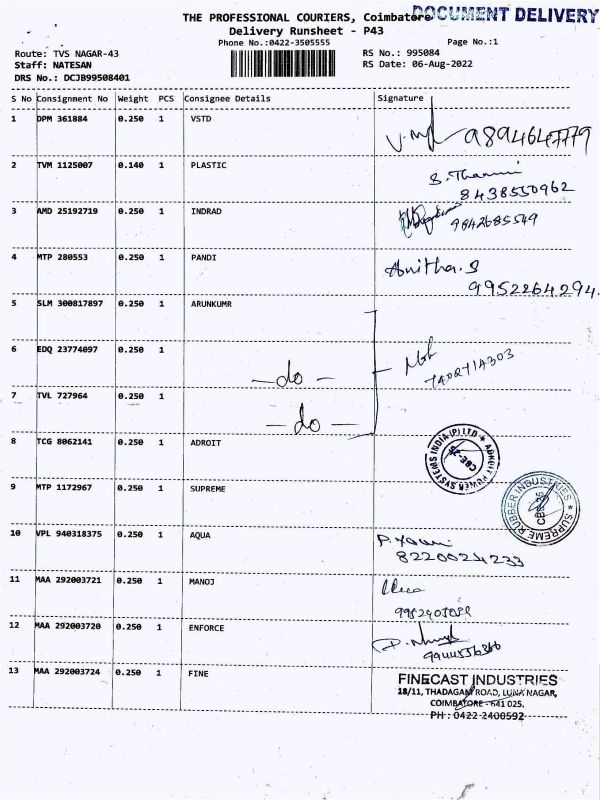 THE PROFESSIONAL COURIERS, Coimbatore
DOCUMENT DELIVERY
Delivery Runsheet - P43
Phone No.:0422-3505555
Page No.:1
Route: TVS NAGAR-43
RS No.: 995084
Staff: NATESAN
RS Date: 06-Aug-2022
DRS No.: DCJB99508401
S No Consignment No Weight PCS Consignee Details Signature
1 DPM 361884 0.250 1 VSTD
9894647779
2 TVM 1125007 0.140 1 PLASTIC
8438550962
3 AMD 25192719 0.250 1 INDRAD
9842685549
4 MTP 280553 0.250 1 PANDI Anitha.S
9952264294.
5 SLM 300817897 0.250 1 ARUNKUMR
6 EDQ 23774097 0.250 1
- do -
7 TVL 727964 0.250 1
- do -
8 TCG 8062141 0.250 1 ADROIT
ADROIT POWER SYSTEMS INDIA (P) LTD
9 MTP 1172967 0.250 1 SUPREME
SUPREME RUBBER INDUSTRIES
10 VPL 940318375 0.250 1 AQUA
8220024233
11 MAA 292003721 0.250 1 MANOJ
12 MAA 292003720 0.250 1 ENFORCE
13 MAA 292003724 0.250 1 FINE
FINECAST INDUSTRIES
18/11, THADAGAM ROAD, LUNA NAGAR,
COIMBATORE - 641 025.
PH : 0422-2400592